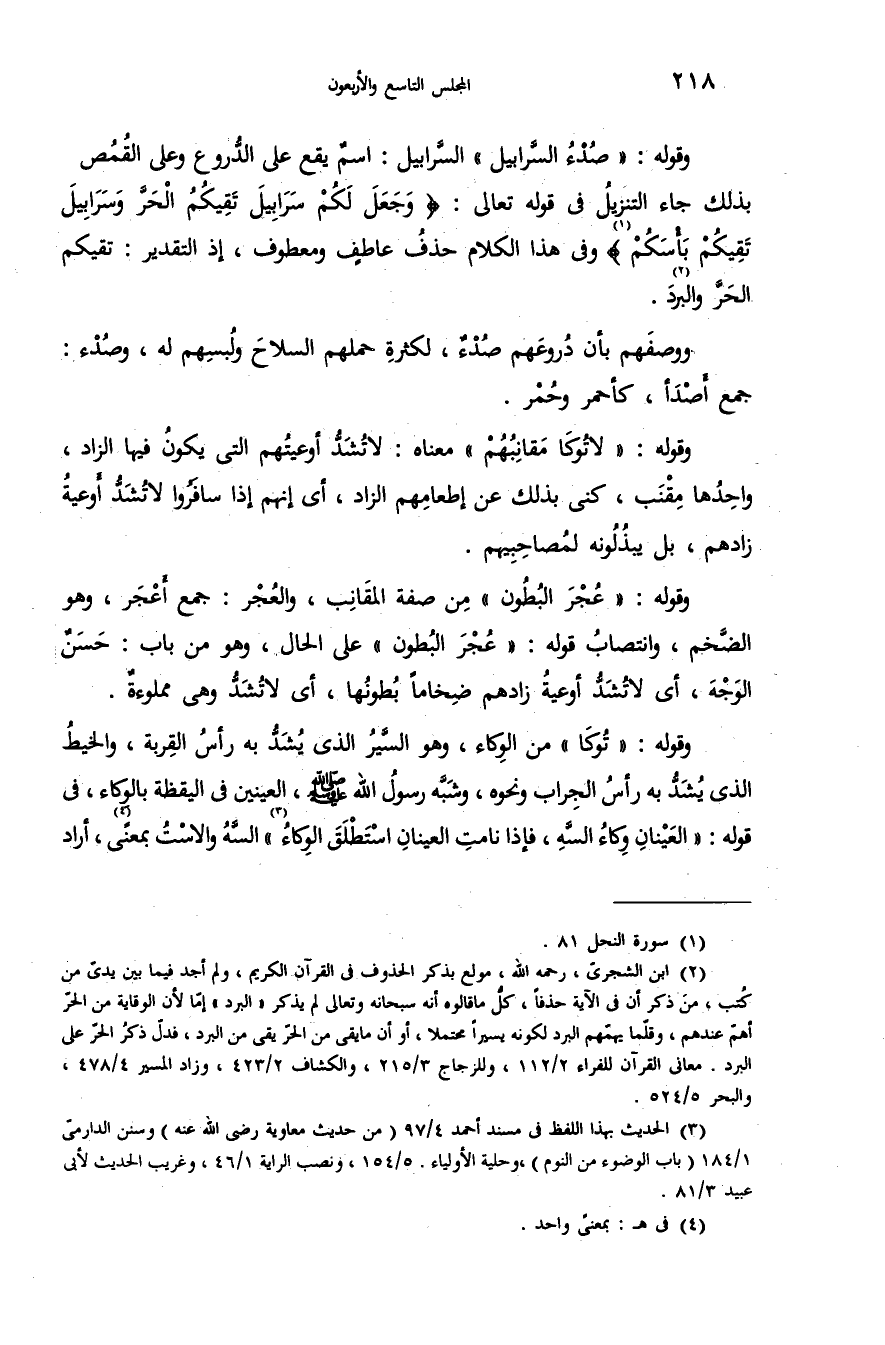 ٢١٨
المجلس التاسع والأربعون
وقوله : « صُدْءُ السَّرابيل » السَّرابيل : اسمٌ يقع على الدُّروع وعلى القُمُص
بذلك جاء التنزيلُ فى قوله تعالى : ﴿ وَجَعَلَ لَكُمْ سَرَابِيلَ تَقِيكُمُ الْحَرَّ وَسَرَابِيلَ
تَقِيكُمْ بَأْسَكُمْ ﴾(١) وفى هذا الكلام حذفُ عاطفٍ ومعطوف ، إذ التقدير : تقيكم
الحَرَّ والبردَ(٢) .
ووصفَهم بأن دُروعَهم صُدْءٌ ، لكثرةِ حملهم السلاحَ ولُبسِهم له ، وصُدْء :
جمع أَصْدَأ ، كأحمر وحُمْر .
وقوله : « لاتُوكَا مَقانِبُهُمْ » معناه : لاتُشَدُّ أوعيتُهم التى يكونُ فيها الزاد ،
واحِدُها مِقْنَب ، كنى بذلك عن إطعامِهم الزاد ، أى إنهم إذا سافَرُوا لاتُشَدُّ أوعيةُ
زادهم ، بل يبذُلُونه لمُصاحِبِيهم .
وقوله : « عُجْرَ البُطُون » مِن صفة المقَانِب ، والعُجْر : جمع أَعْجَر ، وهو
الضَّخم ، وانتصابُ قوله : « عُجْرَ البُطون » على الحال ، وهو من باب : حَسَنٌ
الوَجْهَ ، أى لاتُشَدُّ أوعيةُ زادهم ضِخاماً بُطونُها ، أى لاتُشَدُّ وهى مملوءةٌ .
وقوله : « تُوكَا » من الوِكاء ، وهو السَّيرُ الذى يُشَدُّ به رأسُ القِربة ، والخيطُ
الذى يُشَدُّ به رأسُ الجِراب ونحوه ، وشبَّه رسولُ الله ﷺ ، العينين فى اليقظة بالوِكاء ، فى
قوله : « العَيْنانِ وِكاءُ السَّهِ ، فإذا نامتِ العينانِ اسْتَطْلَقَ الوِكاءُ(٣) » السَّهُ والاسْتُ بمعنًى(٤) ، أراد
(١) سورة النحل ٨١ .
(٢) ابن الشجرىّ ، رحمه الله ، مولع بذكر الحذوف فى القرآن الكريم ، ولم أجد فيما بين يدىّ من
كُتب ، منَ ذكر أن فى الآية حذفاً ، كلُّ ماقالوه أنه سبحانه وتعالى لم يذكر « البرد » إمّا لأن الوقاية من الحرّ
أهمّ عندهم ، وقلّما يهمّهم البرد لكونه يسيراً محتملا ، أو أن مايقى من الحرّ يقى من البرد ، فدلّ ذكرُ الحرّ على
البرد . معانى القرآن للفراء ١١٢/٢ ، وللزجاج ٢١٥/٣ ، والكشاف ٤٢٣/٢ ، وزاد المسير ٤٧٨/٤ ،
والبحر ٥٢٤/٥ .
(٣) الحديث بهذا اللفظ فى مسند أحمد ٩٧/٤ ( من حديث معاوية رضى الله عنه ) وسنن الدارمىّ
١٨٤/١ ( باب الوضوء من النوم ) ،وحلية الأولياء . ١٥٤/٥ ، ونصب الراية ٤٦/١ ، وغريب الحديث لأبى
عبيد ٨١/٣ .
(٤) فى هـ : بمعنىً واحد .